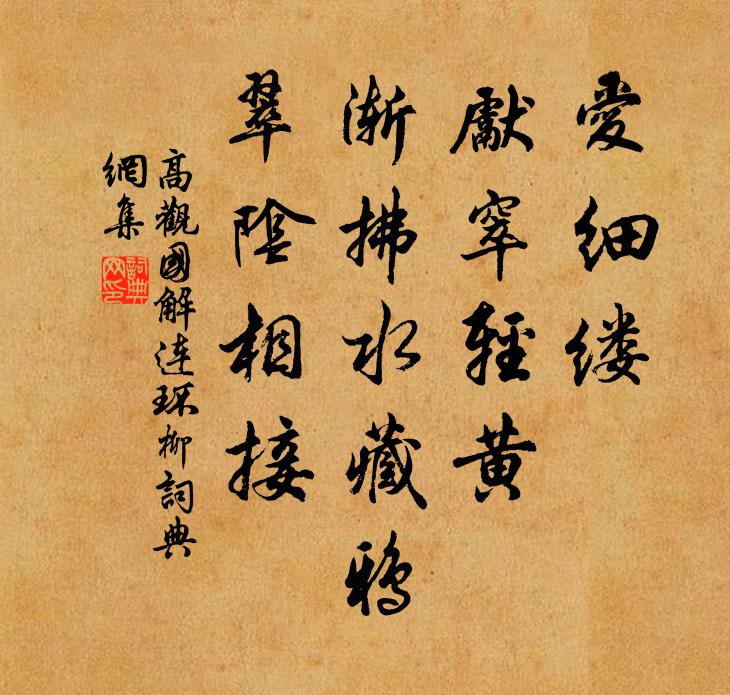 愛細縷
獻窣輕黄
漸拂水藏鴉
翠陰相接
高觀國解連環柳詞典
網集
詞典
网印